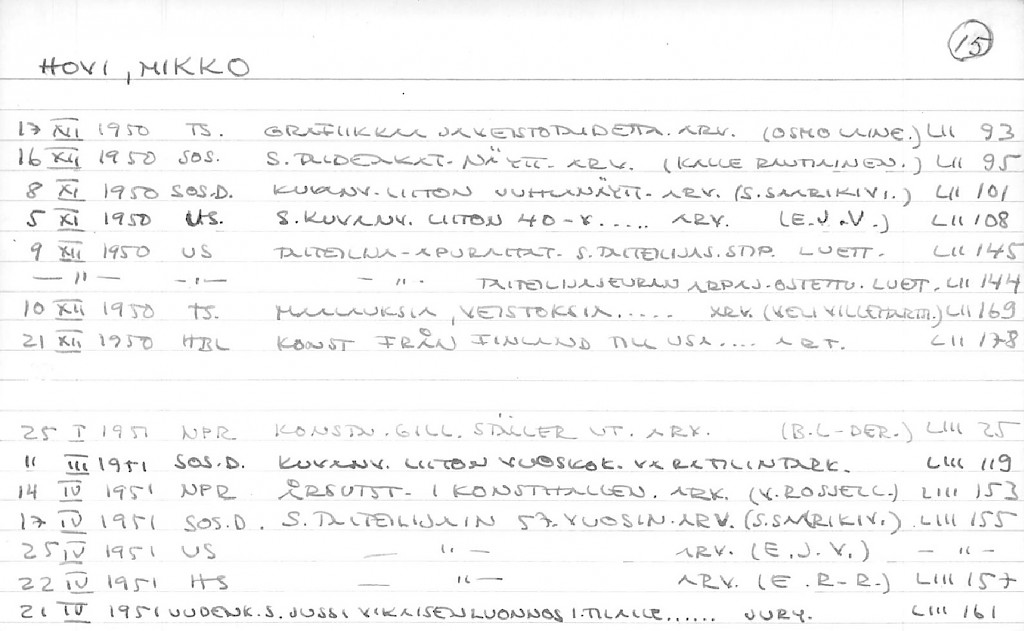 15
HOVI, MIKKO
17 XII 1950 TS. GRAFIIKKAA JA VEISTOTAIDETTA. ARV. (OSMO LAINE.) LII 93
16 XII 1950 SOS. S. TAIDEAKAT. NÄYTT. ARV. (KALLE RAUTIAINEN.) LII 95
8 XI 1950 SOS.D. KUVANV. LIITON JUHLANÄYTT. ARV. (S. SAARIKIVI.) LII 101
5 XI 1950 US. S. KUVANV. LIITON 40-V..... ARV. (E.J.V.) LII 108
9 XII 1950 US TAITEILIJA-APURAHAT. S. TAITEILIJAS. STIP. LUETT. LII 145
— " — - " - - " - TAITEILIJASEURAN ARPAJ. OSTETTU. LUET. LII 144
10 XII 1950 TS. MAALAUKSIA, VEISTOKSIA..... ARV. (VELI VILLEHARTT.) LII 169
21 XII 1950 HBL KONST FRÅN FINLAND TILL USA.... ART. LII 178
25 I 1951 NPR KONSTN. GILL. STÄLLER UT. ARV. (B.L-DER.) LIII 25
11 III 1951 SOS.D. KUVANV. LIITON VUOSKOK. VARATILINTARK. LIII 119
14 IV 1951 NPR ÅRSUTST. I KONSTHALLEN. ARV. (V. ROSSELL.) LIII 153
17 IV 1951 SOS.D. S. TAITEILIJAIN 57. VUOSIN. ARV. (S. SAARIKIVI.) LIII 155
25 IV 1951 US — " — ARV. (E.J.V.) — " —
22 IV 1951 HS — " — ARV. (E.R-R.) LIII 157
21 IV 1951 UUDENK.S. JUSSI VIKAISEN LUONNOS I. TILALLE...... JURY. LIII 161